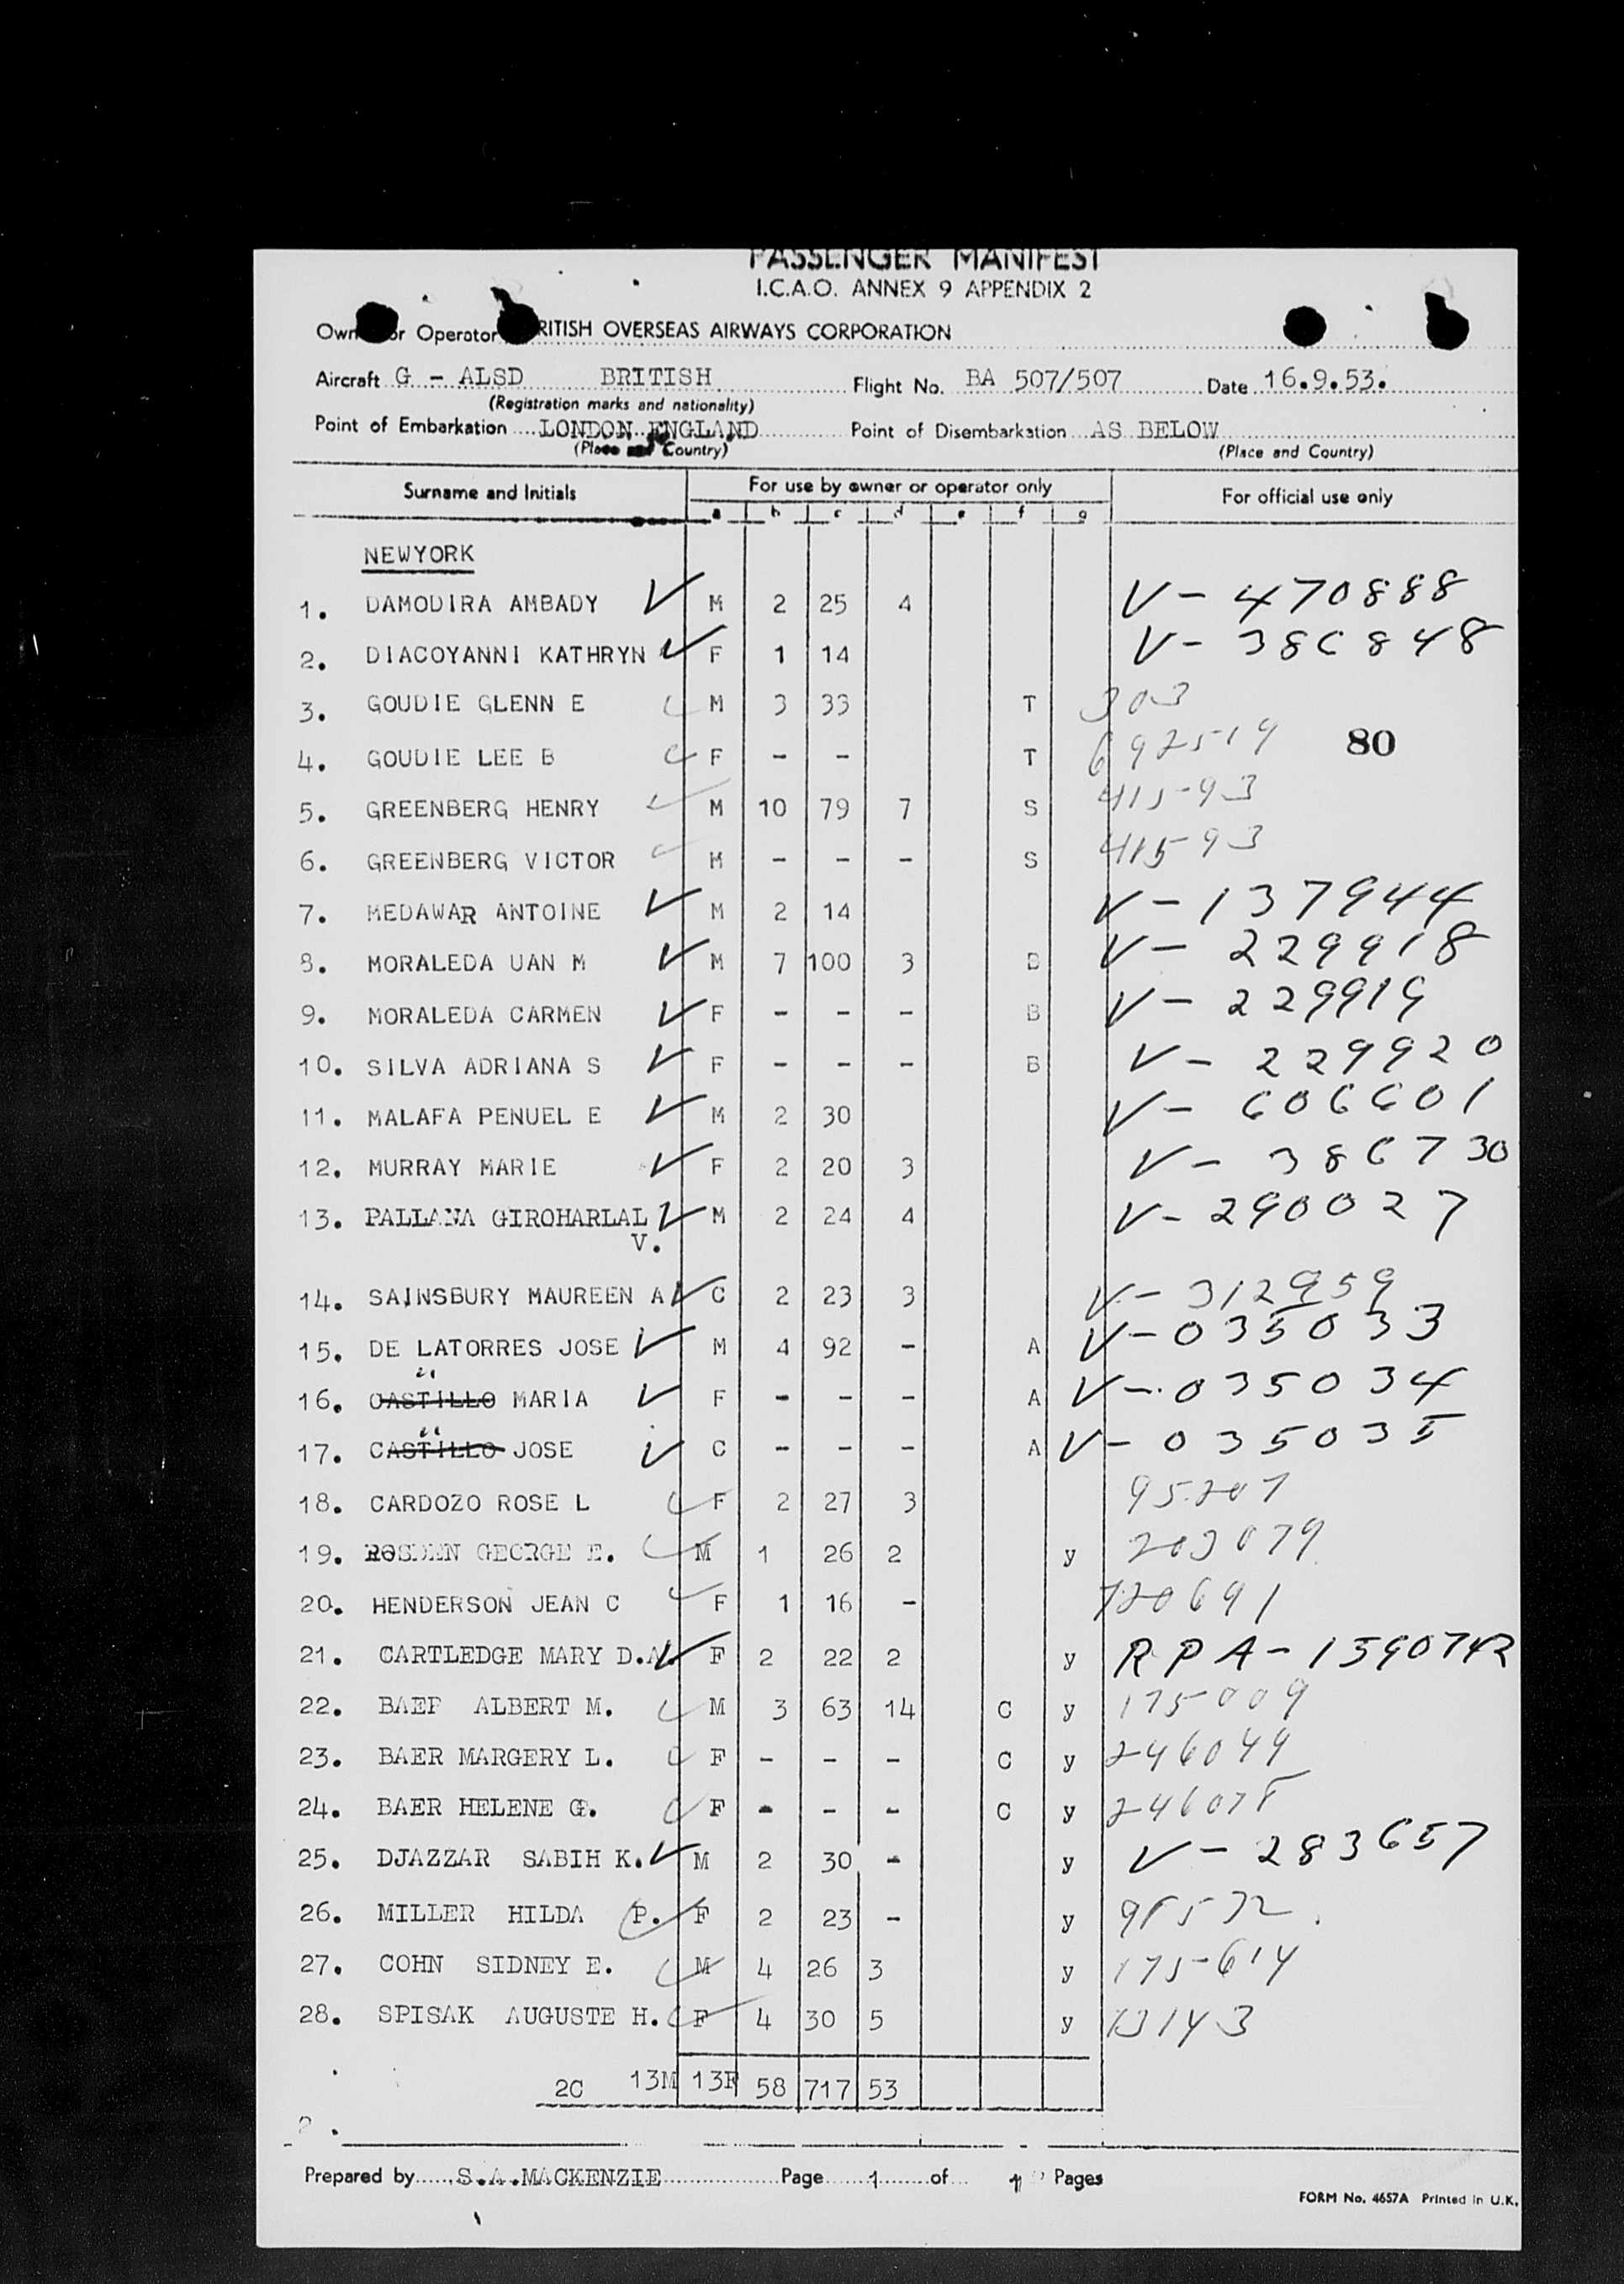 PASSENGER MANIFEST
I.C.A.O. ANNEX 9 APPENDIX 2
Operator RITISH OVERSEAS AIRWAYS CORPORATION
Aircraft G - ALSD BRITISH Flight No. BA 507/507 Date 16.9.53.
(Registration marks and nationality)
Point of Embarkation LONDON ENGLAND Point of Disembarkation AS BELOW
(Place and Country) (Place and Country)
Surname and Initials For use by owner or operator only For official use only
a b c d e f g
NEWYORK
1. DAMODIRA AMBADY M 2 25 4 V-470888
2. DIACOYANNI KATHRYN F 1 14 V-386848
3. GOUDIE GLENN E M 3 33 T 303
4. GOUDIE LEE B F - - T 692519
80
5. GREENBERG HENRY M 10 79 7 S 41593
6. GREENBERG VICTOR M - - - S 41593
7. MEDAWAR ANTOINE M 2 14 V-137944
8. MORALEDA UAN M M 7 100 3 B V-229918
9. MORALEDA CARMEN F - - - B V-229919
10. SILVA ADRIANA S F - - - B V-229920
11. MALAFA PENUEL E M 2 30 V-606601
12. MURRAY MARIE F 2 20 3 V-386730
13. PALLANA GIROHARLAL M 2 24 4 V-290027
V.
14. SAINSBURY MAUREEN A C 2 23 3 V-312959
15. DE LATORRES JOSE M 4 92 - A V-035033
16. CASTILLO MARIA F - - - A V-035034
17. CASTILLO JOSE C - - - A V-035035
18. CARDOZO ROSE L F 2 27 3 95207
19. ROSDEN GEORGE E. M 1 26 2 y 203079
20. HENDERSON JEAN C F 1 16 - 720691
21. CARTLEDGE MARY D.A. F 2 22 2 y RPA-1590742
22. BAEP ALBERT M. M 3 63 14 C y 175009
23. BAER MARGERY L. F - - - C y 246049
24. BAER HELENE G. F - - - C y 246078
25. DJAZZAR SABIH K. M 2 30 - y V-283657
26. MILLER HILDA P. F 2 23 - y
27. COHN SIDNEY E. M 4 26 3 y 175614
28. SPISAK AUGUSTE H. F 4 30 5 y 13143
2C 13M 13F 58 717 53
Prepared by S.A.MACKENZIE Page 1 of 1 Pages
FORM No. 4657A Printed in U.K.